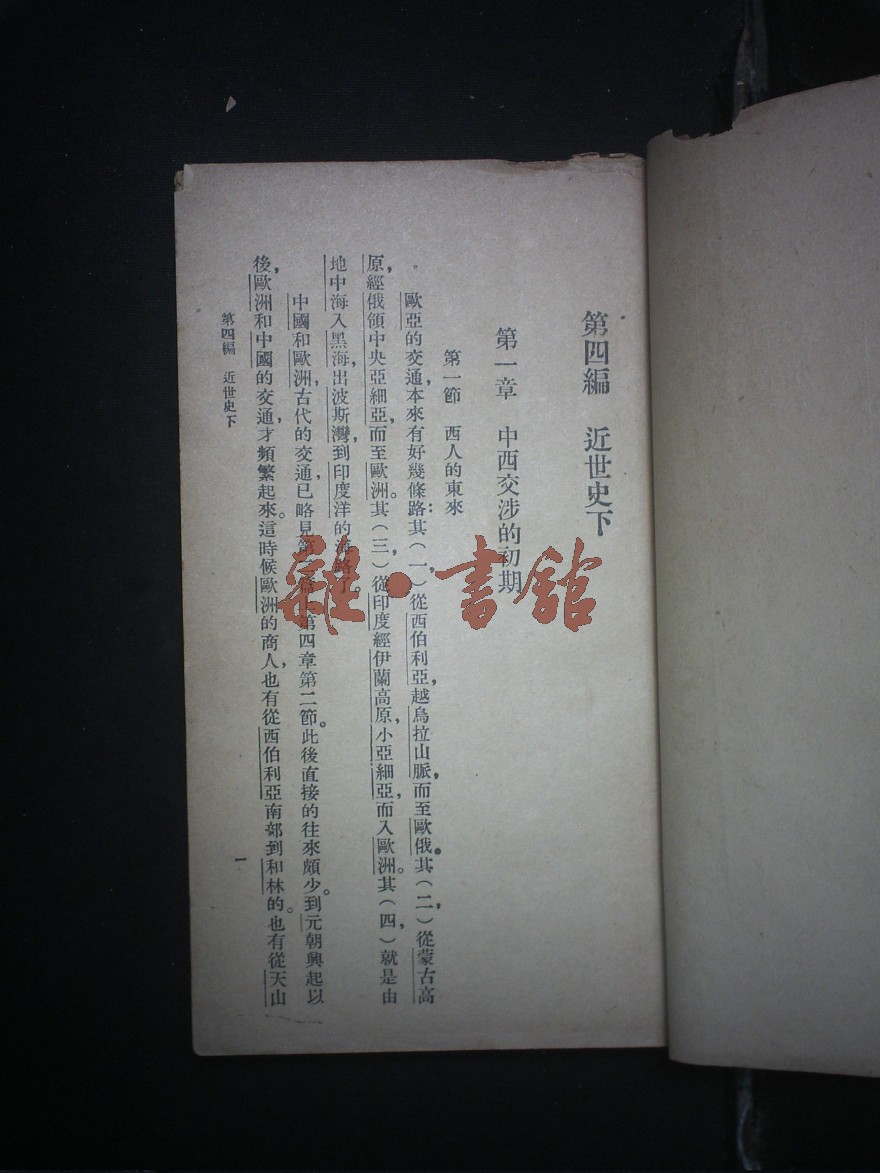 第四編　近世史下
第一章　中西交涉的初期
第一節　西人的東來
歐亞的交通，本來有好幾條路：其（一），從西伯利亞越烏拉山脈，而至歐俄。其（二），從蒙古高
原，經俄領中央亞細亞，而至歐洲。其（三），從印度經伊蘭高原，小亞細亞，而入歐洲。其（四，）就是由
地中海入黑海，出波斯灣，到印度洋的海路了。
中國和歐洲，古代的交通，已略見第 第四章第二節。此後直接的往來頗少。到元朝興起以
後，歐洲和中國的交通，才頻繁起來。這時候歐洲的商人，也有從西伯利亞南部到和林的。也有從天山
第四編　近世史下
一
雜·書館